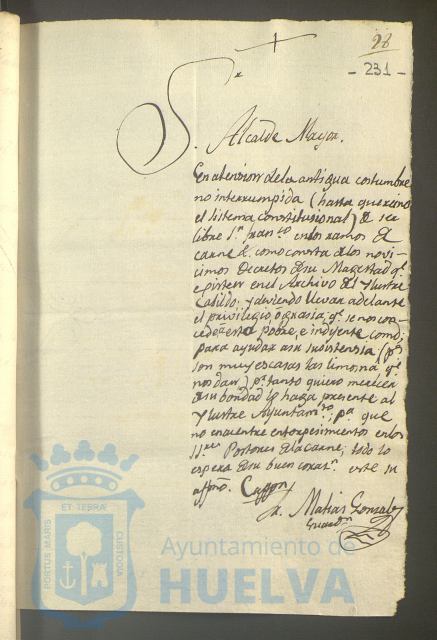 28
- 231 -
S.or
S. Alcalde Mayor.
En atencion de la antigua costumbre
no interrumpida (hasta que vino
el sistema constitucional) de ser
libre S.n Fran.co en los ramos de
carne &. como consta de los novi-
simos Decretos de su Magestad q.e
existen en el Archivo del Ylustre
Cabildo; y deviendo llevar adelante
el privilegio, o grasia, q.e se nos con-
cede a esta pobre, e indijente comd;
para ayudar a su subsistensia (p.s
son muy escasas las limosnas q.e
nos dan) p.r tanto quiero merecer
de su bondad lo haga presente al
Ylustre Ayuntam.to; p.a que
no encuentre entorpesimientos en los
Portones de la carne; todo lo
espera de su buen coraz.n este su
affmo. Cappn.
Fr. Matias Gonzalez
Guardn.
PORTUS MARIS
ET TERRAE
CUSTODIA
Ayuntamiento de
HUELVA